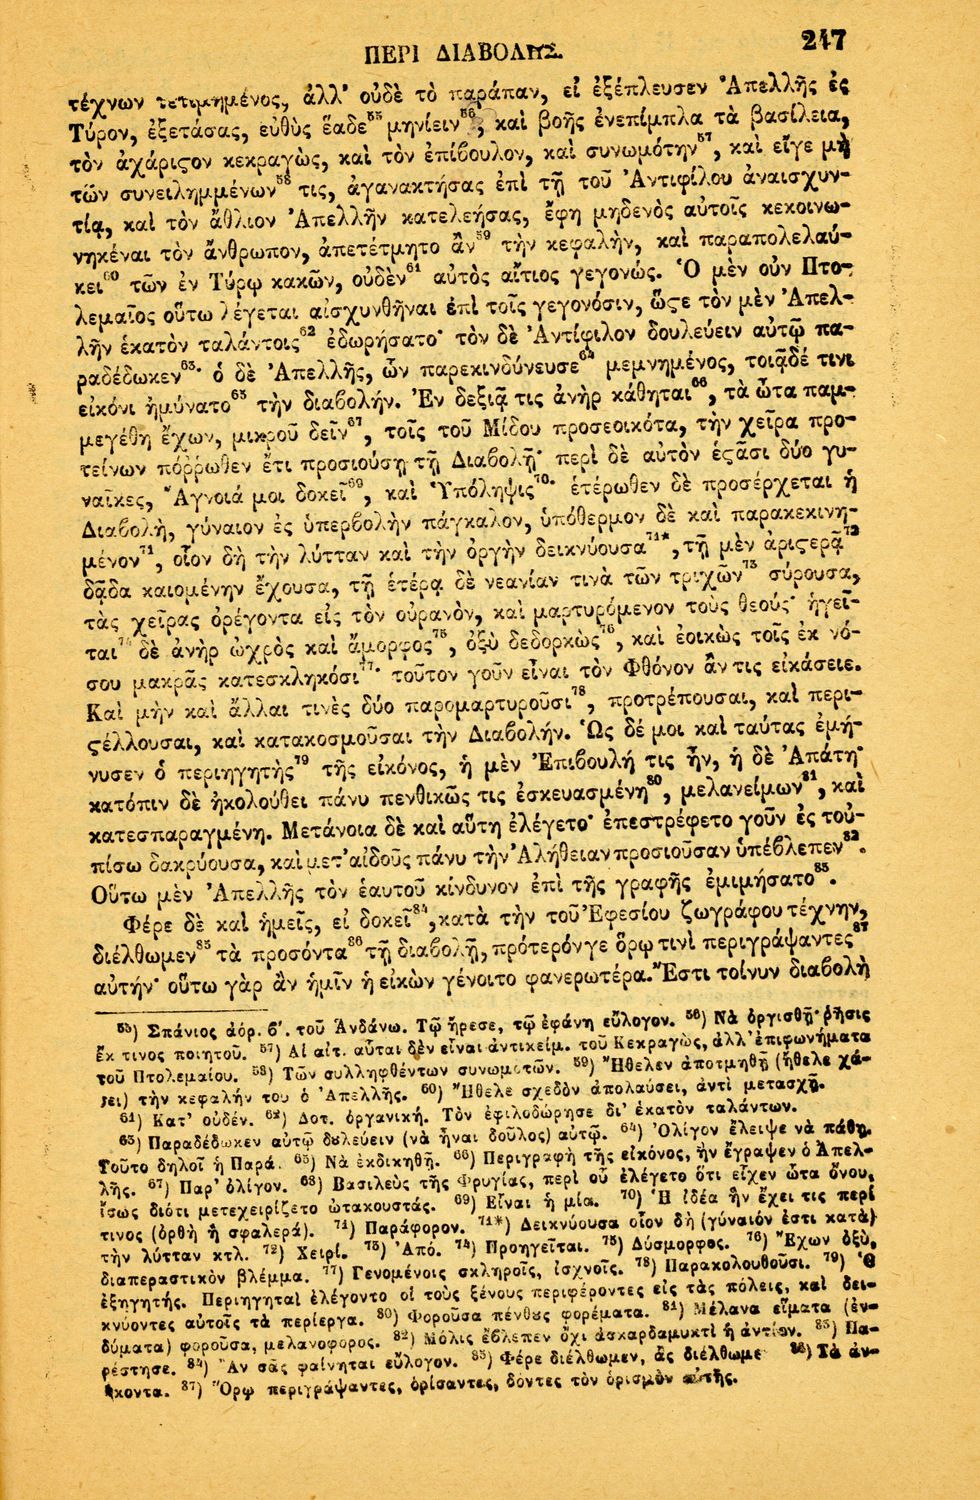 ΠΕΡΙ ΔΙΑΒΟΛΗΣ. 247
τέχνων τετιμημένος, ἀλλ' οὐδὲ τὸ παράπαν, εἰ ἐξέπλευσεν Ἀπελλῆς ἐς
Τύρον, ἐξετάσας, εὐθὺς ἔαδε⁵⁵ μηνίειν⁵⁶, καὶ βοῆς ἐνεπίμπλα τὰ βασίλεια,
τὸν ἀχάριϛον κεκραγὼς, καὶ τὸν ἐπίβουλον, καὶ συνωμότην⁵⁷, καὶ εἴγε μὴ
τῶν συνειλημμένων⁵⁸ τις, ἀγανακτήσας ἐπὶ τῇ τοῦ Ἀντιφίλου ἀναισχυν-
τίᾳ, καὶ τὸν ἄθλιον Ἀπελλῆν κατελεήσας, ἔφη μηδενὸς αὐτοῖς κεκοινω-
νηκέναι τὸν ἄνθρωπον, ἀπετέτμητο ἂν⁵⁹ τὴν κεφαλὴν, καὶ παραπολελαύ-
κει⁶⁰ τῶν ἐν Τύρῳ κακῶν, οὐδὲν⁶¹ αὐτὸς αἴτιος γεγονώς. Ὁ μὲν οὖν Πτο-
λεμαῖος οὕτω λέγεται αἰσχυνθῆναι ἐπὶ τοῖς γεγονόσιν, ὥϛε τὸν μὲν Ἀπελ-
λῆν ἑκατὸν ταλάντοις⁶² ἐδωρήσατο· τὸν δὲ Ἀντίφιλον δουλεύειν αὐτῷ πα-
ραδέδωκεν⁶³· ὁ δὲ Ἀπελλῆς, ὧν παρεκινδύνευσε⁶⁴ μεμνημένος, τοιᾷδέ τινι
εἰκόνι ἠμύνατο⁶⁵ τὴν διαβολήν. Ἐν δεξιᾷ τις ἀνὴρ κάθηται⁶⁶, τὰ ὦτα παμ-
μεγέθη ἔχων, μικροῦ δεῖν⁶⁷, τοῖς τοῦ Μίδου προσεοικότα, τὴν χεῖρα προ-
τείνων πόῤῥωθεν ἔτι προσιούσῃ τῇ Διαβολῇ· περὶ δὲ αὐτὸν ἑϛᾶσι δύο γυ-
ναῖκες, Ἄγνοιά μοι δοκεῖ⁶⁹, καὶ Ὑπόληψις⁷⁰· ἑτέρωθεν δὲ προσέρχεται ἡ
Διαβολὴ, γύναιον ἐς ὑπερβολὴν πάγκαλον, ὑπόθερμον δὲ καὶ παρακεκινη-
μένον⁷¹, οἷον δὴ τὴν λύτταν καὶ τὴν ὀργὴν δεικνύουσα⁷¹*, τῇ μὲν ἀριϛερᾷ⁷²
δᾷδα καιομένην ἔχουσα, τῇ ἑτέρᾳ δὲ νεανίαν τινὰ τῶν τριχῶν⁷³ σύρουσα,
τὰς χεῖρας ὀρέγοντα εἰς τὸν οὐρανὸν, καὶ μαρτυρόμενον τοὺς θεούς· ἡγεῖ-
ται⁷⁴ δὲ ἀνὴρ ὠχρὸς καὶ ἄμορφος⁷⁵, ὀξὺ δεδορκὼς⁷⁶, καὶ ἐοικὼς τοῖς ἐκ νό-
σου μακρᾶς κατεσκληκόσι⁷⁷· τοῦτον γοῦν εἶναι τὸν Φθόνον ἄν τις εἰκάσειε.
Καὶ μὴν καὶ ἄλλαι τινὲς δύο παρομαρτυροῦσι⁷⁸, προτρέπουσαι, καὶ περι-
ϛέλλουσαι, καὶ κατακοσμοῦσαι τὴν Διαβολήν. Ὡς δέ μοι καὶ ταύτας ἐμή-
νυσεν ὁ περιηγητὴς⁷⁹ τῆς εἰκόνος, ἡ μὲν Ἐπιβουλή τις ἦν, ἡ δὲ Ἀπάτη·
κατόπιν δὲ ἠκολούθει πάνυ πενθικῶς τις ἐσκευασμένη⁸⁰, μελανείμων⁸¹, καὶ
κατεσπαραγμένη. Μετάνοια δὲ καὶ αὕτη ἐλέγετο· ἐπεστρέφετο γοῦν ἐς τοὐ-
πίσω δακρύουσα, καὶ μετ' αἰδοῦς πάνυ τὴν Ἀλήθειαν προσιοῦσαν ὑπέβλεπεν⁸².
Οὕτω μὲν Ἀπελλῆς τὸν ἑαυτοῦ κίνδυνον ἐπὶ τῆς γραφῆς ἐμιμήσατο⁸³.
Φέρε δὲ καὶ ἡμεῖς, εἰ δοκεῖ⁸⁴, κατὰ τὴν τοῦ Ἐφεσίου ζωγράφου τέχνην,
διέλθωμεν⁸⁵ τὰ προσόντα⁸⁶ τῇ διαβολῇ, πρότερόν γε ὅρῳ τινὶ περιγράψαντες⁸⁷
αὐτήν· οὕτω γὰρ ἂν ἡμῖν ἡ εἰκὼν γένοιτο φανερωτέρα. Ἔστι τοίνυν διαβολὴ
⁵⁵) Σπάνιος ἀόρ. β΄. τοῦ Ἀνδάνω. Τῷ ἤρεσε, τῷ ἐφάνη εὔλογον. ⁵⁶) Νὰ ὀργισθῇ· ῥῆσις
ἔκ τινος ποιητοῦ. ⁵⁷) Αἱ αἰτ. αὗται δὲν εἶναι ἀντικείμ. τοῦ Κεκραγὼς, ἀλλ' ἐπιφωνήματα
τοῦ Πτολεμαίου. ⁵⁸) Τῶν συλληφθέντων συνωμοτῶν. ⁵⁹) Ἤθελεν ἀποτμηθῇ (ἤθελε χά-
σει) τὴν κεφαλήν του ὁ Ἀπελλῆς. ⁶⁰) Ἤθελε σχεδὸν ἀπολαύσει, ἀντὶ μετασχῇ.
⁶¹) Κατ' οὐδέν. ⁶²) Δοτ. ὀργανική. Τὸν ἐφιλοδώρησε δι' ἑκατὸν ταλάντων.
⁶³) Παραδέδωκεν αὐτῷ δουλεύειν (νὰ ἦναι δοῦλος) αὐτῷ. ⁶⁴) Ὀλίγον ἔλειψε νὰ πάθῃ.
Τοῦτο δηλοῖ ἡ Παρά. ⁶⁵) Νὰ ἐκδικηθῇ. ⁶⁶) Περιγραφὴ τῆς εἰκόνος, ἣν ἔγραψεν ὁ Ἀπελ-
λῆς. ⁶⁷) Παρ' ὀλίγον. ⁶⁸) Βασιλεὺς τῆς Φρυγίας, περὶ οὗ ἐλέγετο ὅτι εἶχεν ὦτα ὄνου,
ἴσως διότι μετεχειρίζετο ὠτακουστάς. ⁶⁹) Εἶναι ἡ μία. ⁷⁰) Ἡ ἰδέα ἣν ἔχει τις περί
τινος (ὀρθὴ ἢ σφαλερά). ⁷¹) Παράφορον. ⁷¹*) Δεικνύουσα οἷον δὴ (γύναιόν ἐστι κατὰ)
τὴν λύτταν κτλ. ⁷²) Χειρί. ⁷³) Ἀπό. ⁷⁴) Προηγεῖται. ⁷⁵) Δύσμορφος. ⁷⁶) Ἔχων ὀξὺ,
διαπεραστικὸν βλέμμα. ⁷⁷) Γενομένοις σκληροῖς, ἰσχνοῖς. ⁷⁸) Παρακολουθοῦσι. ⁷⁹) Ὁ
ἐξηγητής. Περιηγηταὶ ἐλέγοντο οἱ τοὺς ξένους περιφέροντες εἰς τὰς πόλεις, καὶ δει-
κνύοντες αὐτοῖς τὰ περίεργα. ⁸⁰) Φοροῦσα πένθους φορέματα. ⁸¹) Μέλανα εἵματα (ἐν-
δύματα) φοροῦσα, μελανοφορος. ⁸²) Μόλις ἔβλεπεν ὄχι ἀσκαρδαμυκτὶ ἢ ἀντίον. ⁸³) Πα-
ρέστησε. ⁸⁴) Ἂν σᾶς φαίνηται εὔλογον. ⁸⁵) Φέρε διέλθωμεν, ἂς διέλθωμεν. ⁸⁶) Τὰ ἀν-
ήκοντα. ⁸⁷) Ὅρῳ περιγράψαντες, ὁρίσαντες, δόντες τὸν ὁρισμὸν αὐτῆς.